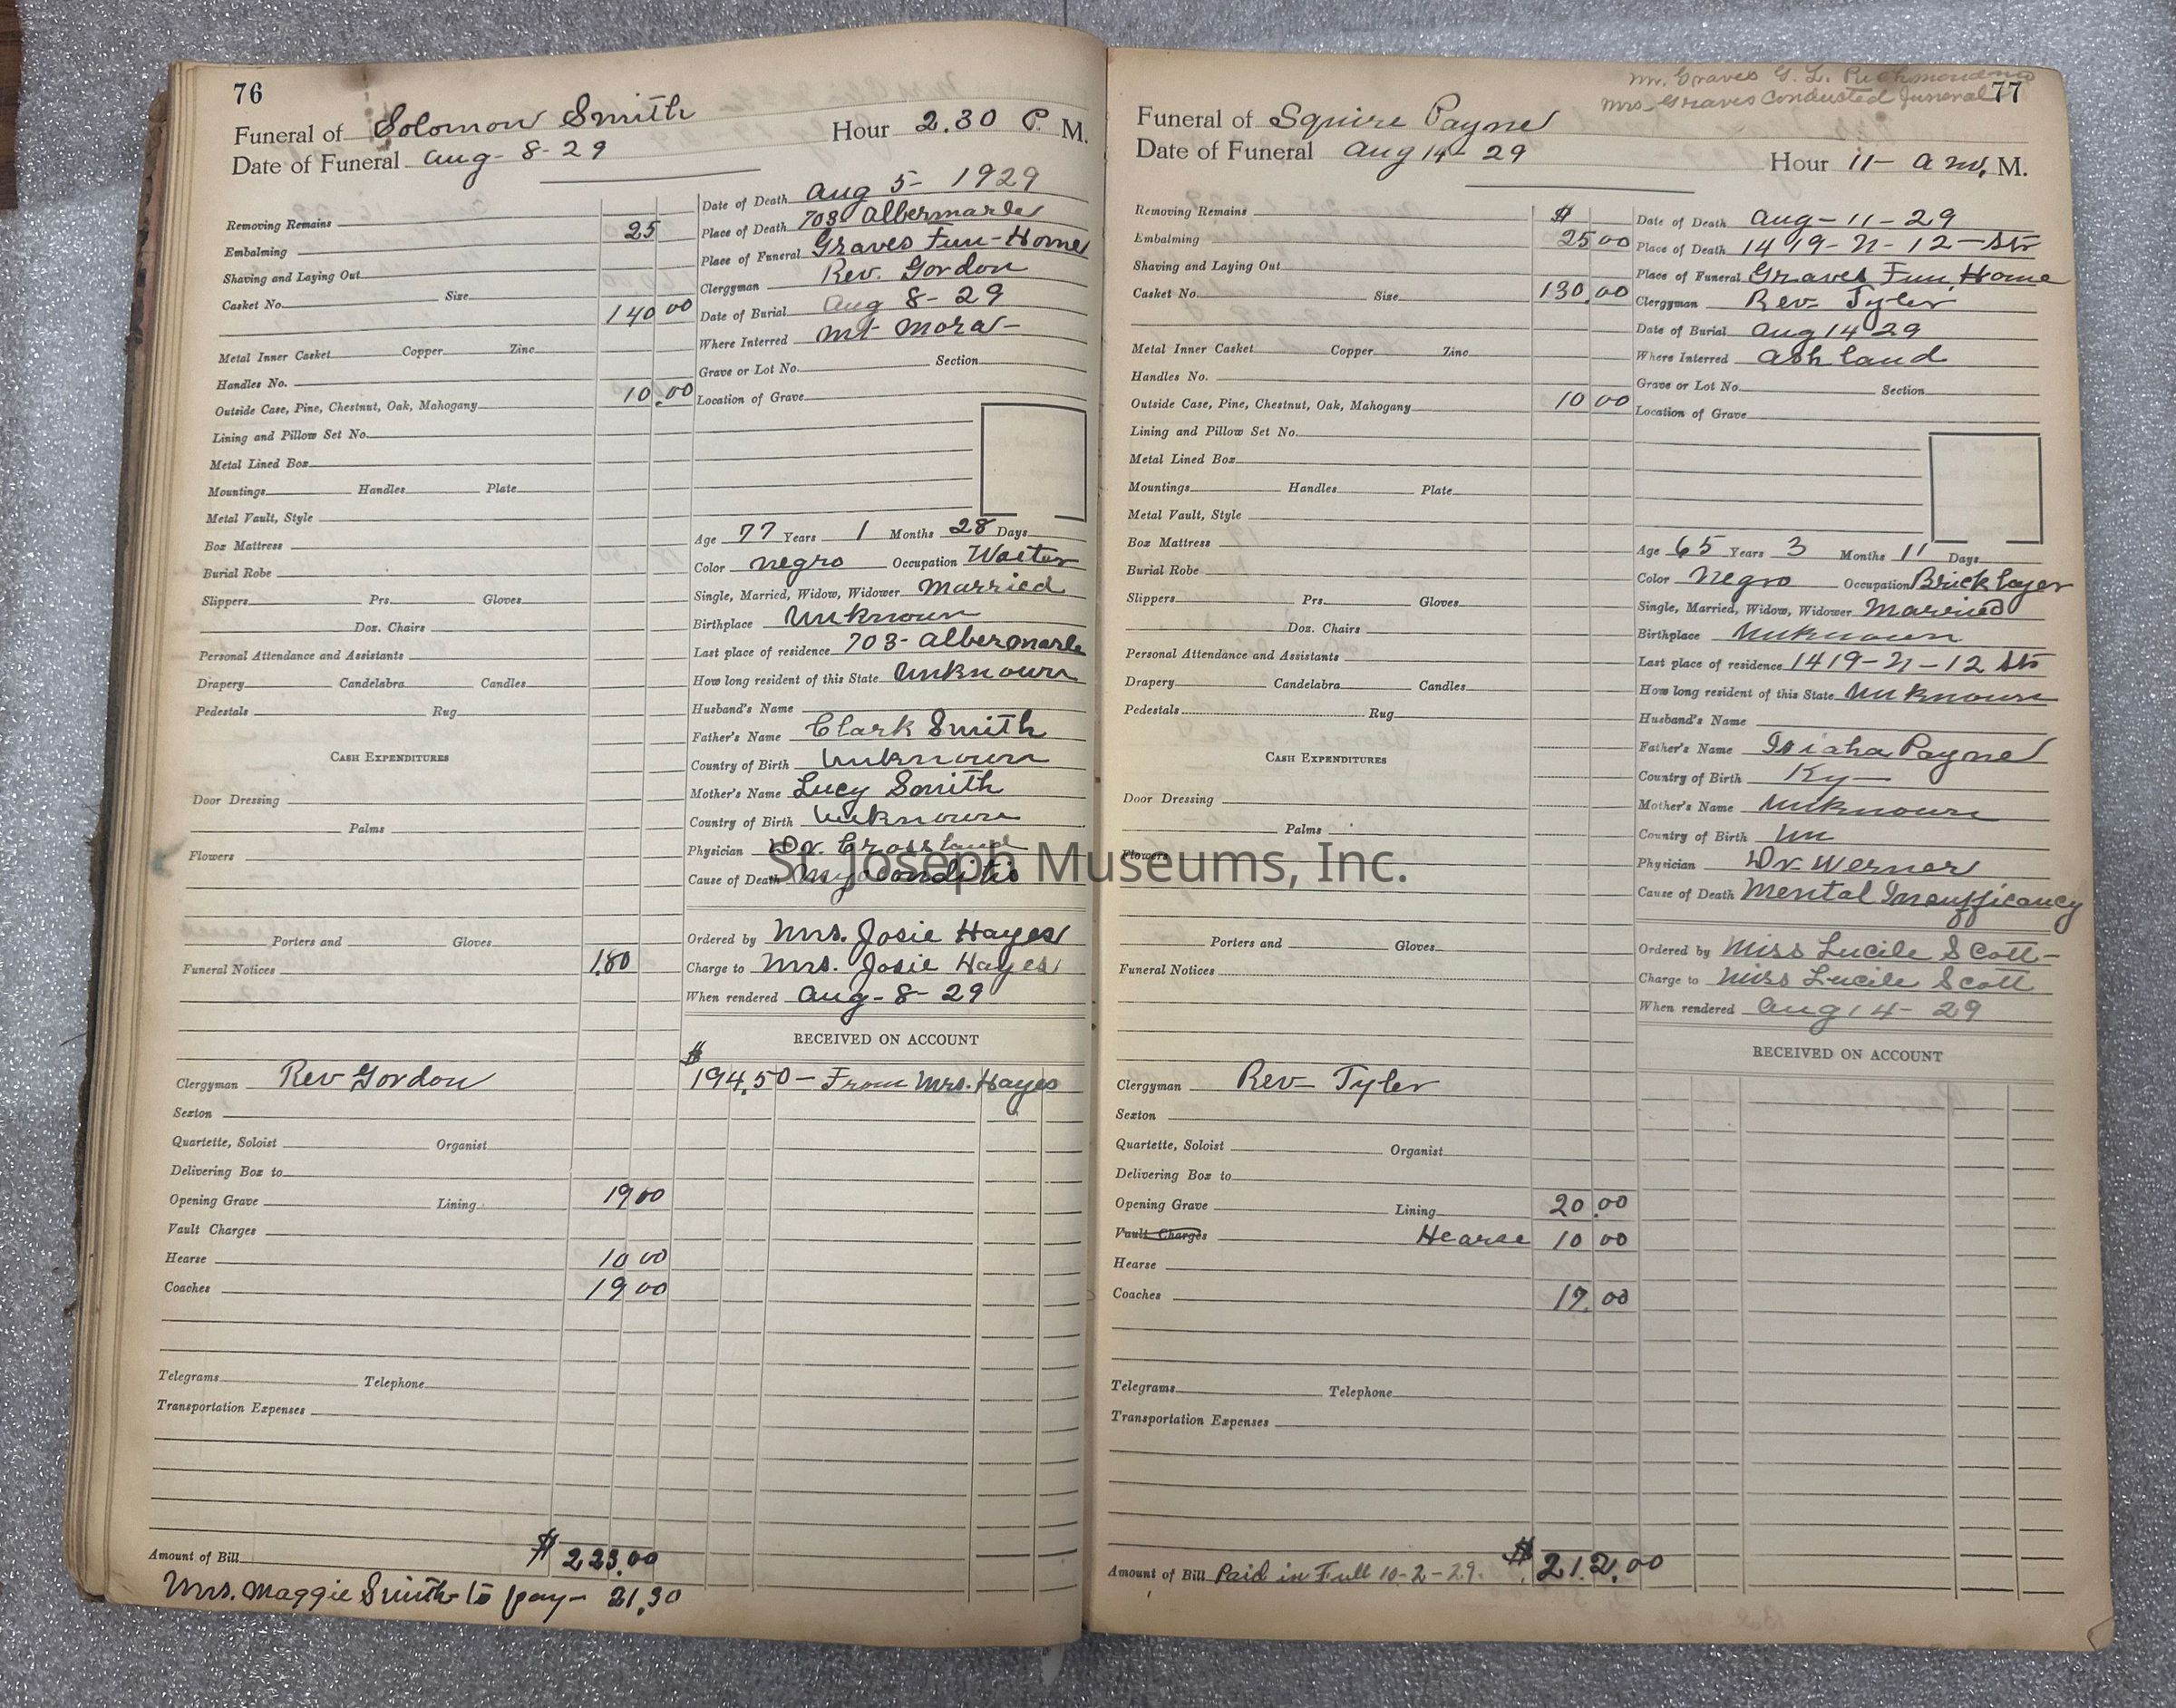 76
Funeral of Solomon Smith Hour 2.30 P. M.
Date of Funeral Aug- 8- 29
Removing Remains
Embalming 25
Shaving and Laying Out
Casket No. Size
140 00
Metal Inner Casket Copper Zinc
Handles No.
Outside Case, Pine, Chestnut, Oak, Mahogany 10.00
Lining and Pillow Set No.
Metal Lined Box
Mountings Handles Plate
Metal Vault, Style
Box Mattress
Burial Robe
Slippers Prs. Gloves
Doz. Chairs
Personal Attendance and Assistants
Drapery Candelabra Candles
Pedestals Rug
CASH EXPENDITURES
Door Dressing
Palms
Flowers
Porters and Gloves
Funeral Notices 1.80
Clergyman Rev Gordon
Sexton
Quartette, Soloist Organist
Delivering Box to
Opening Grave Lining 19 00
Vault Charges
Hearse 10 00
Coaches 19 00
Telegrams Telephone
Transportation Expenses
Amount of Bill $ 223.00
Mrs. Maggie Smith to pay- 21.30
Date of Death Aug 5- 1929
Place of Death 703 Albermarle
Place of Funeral Graves Fun-Home
Clergyman Rev. Gordon
Date of Burial Aug 8- 29
Where Interred Mt Mora-
Grave or Lot No. Section
Location of Grave
Age 77 Years 1 Months 28 Days
Color negro Occupation Waiter
Single, Married, Widow, Widower Married
Birthplace Unknown
Last place of residence 703- Albermarle
How long resident of this State Unknown
Husband's Name
Father's Name Clark Smith
Country of Birth Unknown
Mother's Name Lucy Smith
Country of Birth Unknown
Physician Dr. Crossland
Cause of Death Myocarditis
Ordered by Mrs. Josie Hayes
Charge to Mrs. Josie Hayes
When rendered Aug- 8- 29
RECEIVED ON ACCOUNT
$ 194.50 - From Mrs. Hayes
Mr. Graves G. L. Richmond mo
Mrs. Graves Conducted funeral 77
Funeral of Squire Payne
Date of Funeral Aug 14- 29 Hour 11- a m. M.
Removing Remains $
Embalming 25 00
Shaving and Laying Out
Casket No. Size 130.00
Metal Inner Casket Copper Zinc
Handles No.
Outside Case, Pine, Chestnut, Oak, Mahogany 10 00
Lining and Pillow Set No.
Metal Lined Box
Mountings Handles Plate
Metal Vault, Style
Box Mattress
Burial Robe
Slippers Prs. Gloves
Doz. Chairs
Personal Attendance and Assistants
Drapery Candelabra Candles
Pedestals Rug
CASH EXPENDITURES
Door Dressing
Palms
Flowers
Porters and Gloves
Funeral Notices
Clergyman Rev- Tyler
Sexton
Quartette, Soloist Organist
Delivering Box to
Opening Grave Lining 20.00
Vault Charges Hearse 10 00
Hearse
Coaches 17.00
Telegrams Telephone
Transportation Expenses
Amount of Bill Paid in Full 10-2-29. $ 212.00
Date of Death Aug- 11- 29
Place of Death 1419- N- 12- Str
Place of Funeral Graves Fun. Home
Clergyman Rev- Tyler
Date of Burial Aug 14 29
Where Interred Ashland
Grave or Lot No. Section
Location of Grave
Age 65 Years 3 Months 11 Days
Color Negro Occupation Brick layer
Single, Married, Widow, Widower Married
Birthplace Unknown
Last place of residence 1419- N- 12 Str
How long resident of this State Unknown
Husband's Name
Father's Name Isiaha Payne
Country of Birth Ky-
Mother's Name Unknown
Country of Birth Un
Physician Dr Werner
Cause of Death Mental Insufficancy
Ordered by Miss Lucile Scott-
Charge to Miss Lucile Scott
When rendered Aug 14- 29
RECEIVED ON ACCOUNT
St. Joseph Museums, Inc.